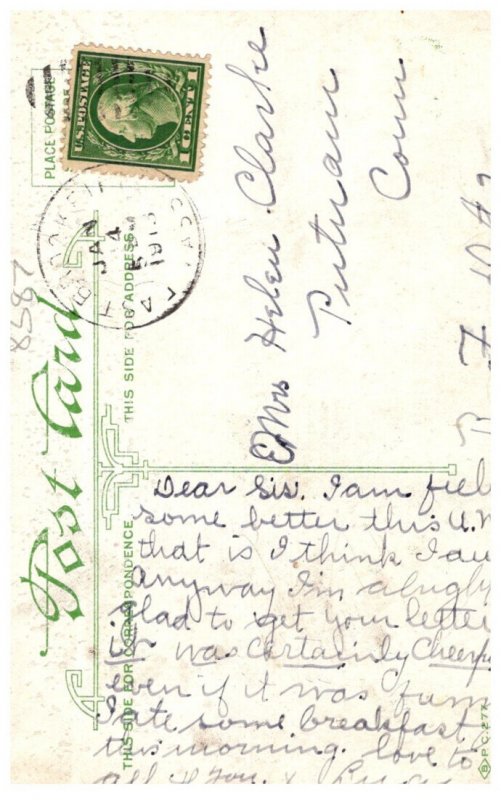 Post Card
THIS SIDE FOR CORRESPONDENCE
THIS SIDE FOR ADDRESS
PLACE POSTAGE
U.S. POSTAGE
1 CENT 1
JAN
4
1913
CONN
8587
Mrs Helen Clarke
Putnam
Conn
Dear Sis. I am feel
some better this
that is I think I am
Anyway I'm
glad to get your lette
it was certainly Cheerfu
even if it was funn
I ate some breakfast
this morning. love to
all of you
P.C. 277